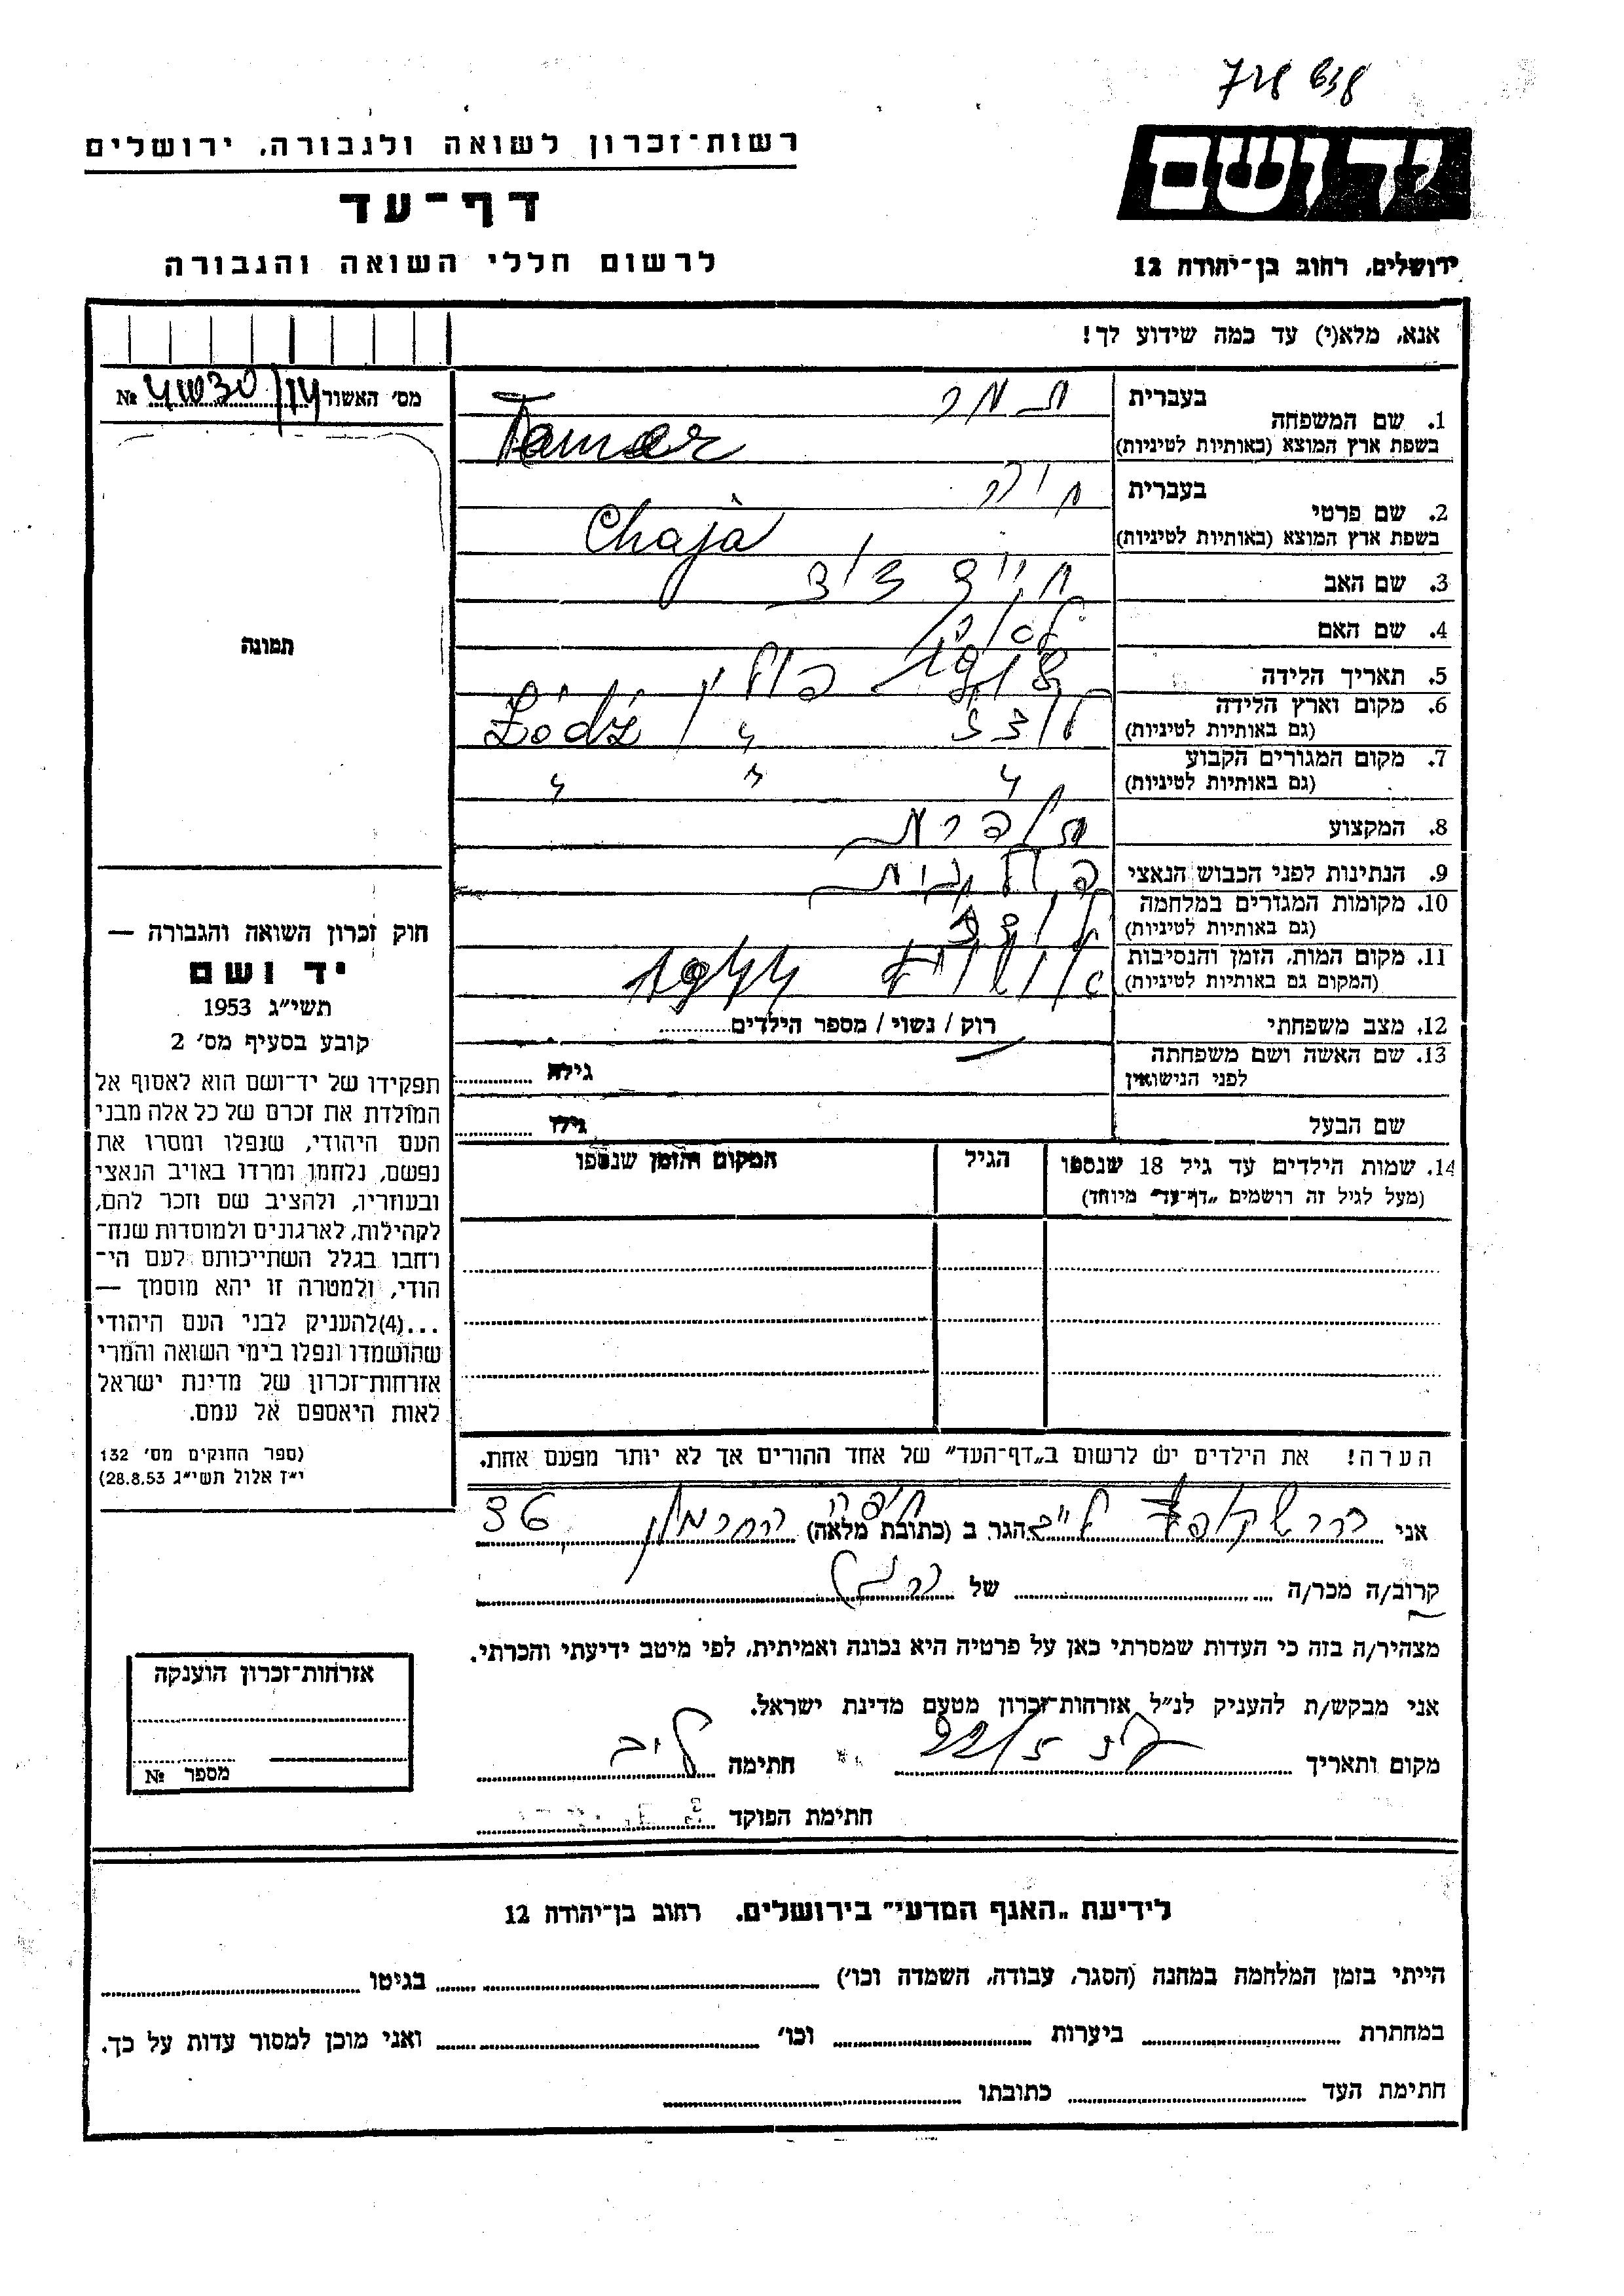 רשות־זכרון לשואה ולגבורה, ירושלים
דף־עד
לרשום חללי השואה והגבורה
יד ושם
ירושלים, רחוב בן־יהודה 12
אנא, מלא(י) עד כמה שידוע לך!
מס׳ האשור №
בעברית תמר
1. שם המשפחה
בשפת ארץ המוצא (באותיות לטיניות) Tamar
בעברית חיה
2. שם פרטי
בשפת ארץ המוצא (באותיות לטיניות) Chaja
3. שם האב חיים
4. שם האם
5. תאריך הלידה
6. מקום וארץ הלידה פולין
(גם באותיות לטיניות) לודז׳ " / Łodź
7. מקום המגורים הקבוע
(גם באותיות לטיניות) " " "
8. המקצוע תופרת
9. הנתינות לפני הכבוש הנאצי פולנית
10. מקומות המגורים במלחמה
(גם באותיות לטיניות) לודז׳
11. מקום המות, הזמן והנסיבות
(המקום גם באותיות לטיניות) 1944
12. מצב משפחתי רוק / נשוי / מספר הילדים
13. שם האשה ושם משפחתה
לפני הנישואין גילה
שם הבעל גילו
14. שמות הילדים עד גיל 18 שנספו הגיל המקום והזמן שנספו
(מעל לגיל זה רושמים „דף־עד״ מיוחד)
תמונה
חוק זכרון השואה והגבורה —
יד ושם
תשי״ג 1953
קובע בסעיף מס׳ 2
תפקידו של יד־ושם הוא לאסוף אל
המולדת את זכרם של כל אלה מבני
העם היהודי, שנפלו ומסרו את
נפשם, נלחמו ומרדו באויב הנאצי
ובעוזריו, ולהציב שם וזכר להם,
לקהילות, לארגונים ולמוסדות שנח־
רחבו בגלל השתייכותם לעם הי־
הודי, ולמטרה זו יהא מוסמך —
...(4)להעניק לבני העם היהודי
שהושמדו ונפלו בימי השואה והמרי
אזרחות־זכרון של מדינת ישראל
לאות היאספם אל עמם.
(ספר החוקים מס׳ 132
י״ז אלול תשי״ג 28.8.53)
הערה! את הילדים יש לרשום ב„דף־העד״ של אחד ההורים אך לא יותר מפעם אחת.
אני הגר ב (כתובת מלאה) חיפה 36
קרוב/ה מכר/ה של
מצהיר/ה בזה כי העדות שמסרתי כאן על פרטיה היא נכונה ואמיתית, לפי מיטב ידיעתי והכרתי.
אני מבקש/ת להעניק לנ״ל אזרחות־זכרון מטעם מדינת ישראל.
מקום ותאריך חתימה
חתימת הפוקד
אזרחות־זכרון הוענקה
מספר №
לידיעת „האגף המדעי״ בירושלים, רחוב בן־יהודה 12
הייתי בזמן המלחמה במחנה (הסגר, עבודה, השמדה וכו׳) בגיטו
במחתרת ביערות וכו׳ ואני מוכן למסור עדות על כך.
חתימת העד כתובתו